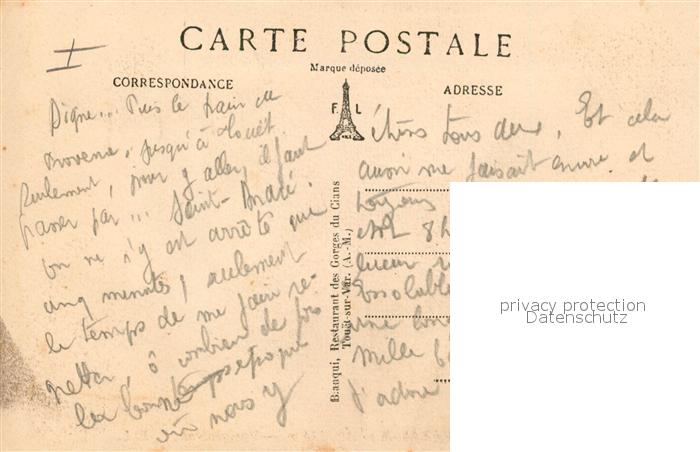 I
CARTE POSTALE
Marque déposée
CORRESPONDANCE
ADRESSE
F L
Digne... Puis le train de
Provence, jusqu'à
Seulement, pour y aller, il faut
passer par... Saint-André.
On ne s'y est arrêté que
cinq minutes, seulement
le temps de me faire re-
gretter, ô combien de fois
les bonne époque
où nous y
Bianqui, Restaurant des Gorges du Cians
Touët-sur-Var. (A.-M.)
étions tous deux. Et cela
aussi me faisait envie et
toujours
et 8h
lueur
Absolument
une
mille b
j'adore
privacy protection
Datenschutz